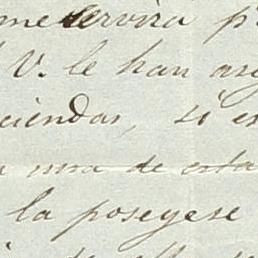 me servira p
V. le han as
ciendas, si es
una de esta
la poseyese